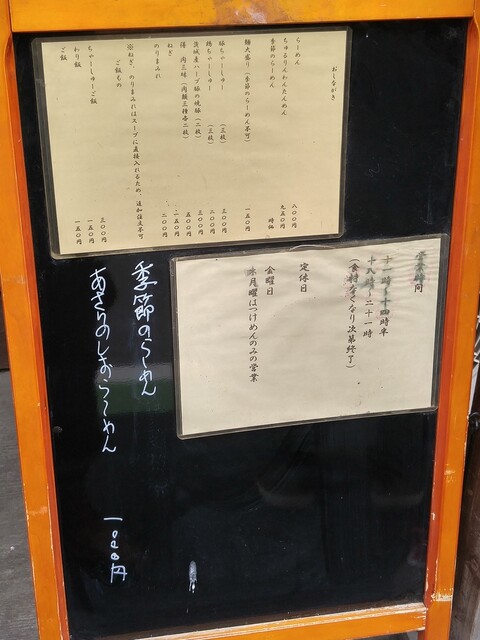 おしながき
らーめん 八〇〇円
ちゅるりんわんたんめん 九五〇円
季節のらーめん 時価
麺大盛り(季節のらーめん不可) 一五〇円
豚ちゃーしゅー (三枚) 三〇〇円
鶏ちゃーしゅー (三枚) 二〇〇円
茨城産ハーブ豚の焼豚(二枚) 三〇〇円
得 肉三昧(肉類三種各二枚) 五〇〇円
ねぎ 一五〇円
のりまみれ 二〇〇円
※ねぎ、のりまみれはスープに直接入れるため、追加注文不可
ごはんもの
ちゃーしゅーご飯 三〇〇円
わり飯 一五〇円
ご飯 一五〇円
営業時間
十一時~十四時半
十八時~二十一時
(食材なくなり次第終了)
定休日
金曜日
木曜はつけめんのみの営業
季節のらーめん
あさりのしおらーめん 一〇〇〇円